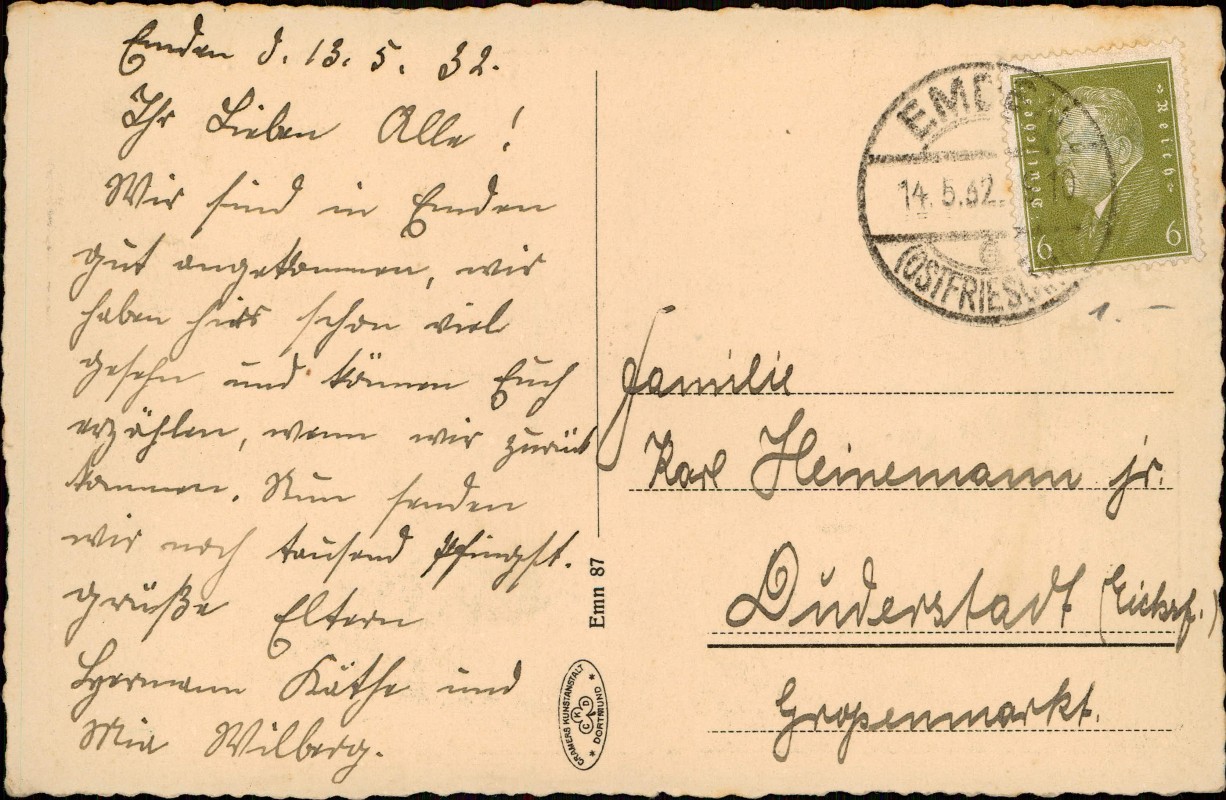 Emden d. 13. 5. 32.
Ihr Lieben Alle!
Wir sind in Emden
gut angekommen, wir
haben hier schon viel
gesehn und können Euch
erzählen, wenn wir zurück
kommen. Nun senden
wir noch tausend Pfingst-
grüße Eltern
Hermann Käthe und
Mia Wilberg.
EMDEN
14.5.32. 10
(OSTFRIESL.)
Deutsches Reich
6 6
1.-
Familie
Karl Heinemann jr.
Duderstadt (Eichsf.)
Großenmarkt.
Emn 87
CRAMERS KUNSTANSTALT DORTMUND
CKD